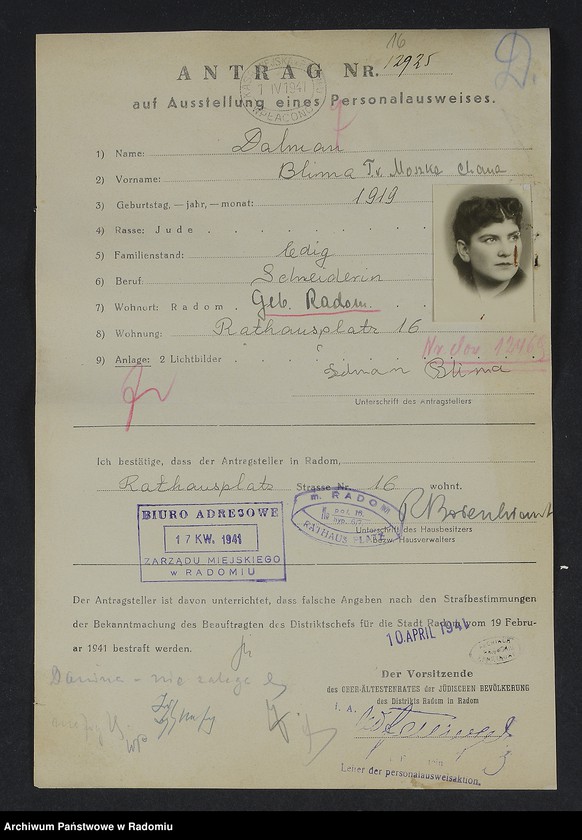 16
ANTRAG NR. 12925
D.
1 IV 1941
WPŁACONO
auf Ausstellung eines Personalausweises.
1) Name: Dalman
2) Vorname: Blima T.v. Moszka Chana
3) Geburtstag, — jahr, — monat: 1919
4) Rasse: Jude
5) Familienstand: ledig
6) Beruf: Schneiderin
7) Wohnort: Radom. Geb. Radom.
8) Wohnung: Rathausplatz 16
9) Anlage: 2 Lichtbilder
Blima
Unterschrift des Antragstellers
Ich bestätige, dass der Antragsteller in Radom,
Rathausplatz Strasse Nr. 16 wohnt.
m. RADOM
RATHAUS PLATZ
Unterschrift des Hausbesitzers
bezw. Hausverwalters
BIURO ADRESOWE
17 KW. 1941
ZARZĄDU MIEJSKIEGO
w RADOMIU
Der Antragsteller ist davon unterrichtet, dass falsche Angaben nach den Strafbestimmungen
der Bekanntmachung des Beauftragten des Distriktschefs für die Stadt Radom vom 19 Febru-
ar 1941 bestraft werden.
10. APRIL 1941
Danina - nie zalega
Der Vorsitzende
des OBER-ÄLTESTENRATES der JÜDISCHEN BEVÖLKERUNG
des Distrikts Radom in Radom
i. A.
Leiter der personalausweisaktion.
Archiwum Państwowe w Radomiu